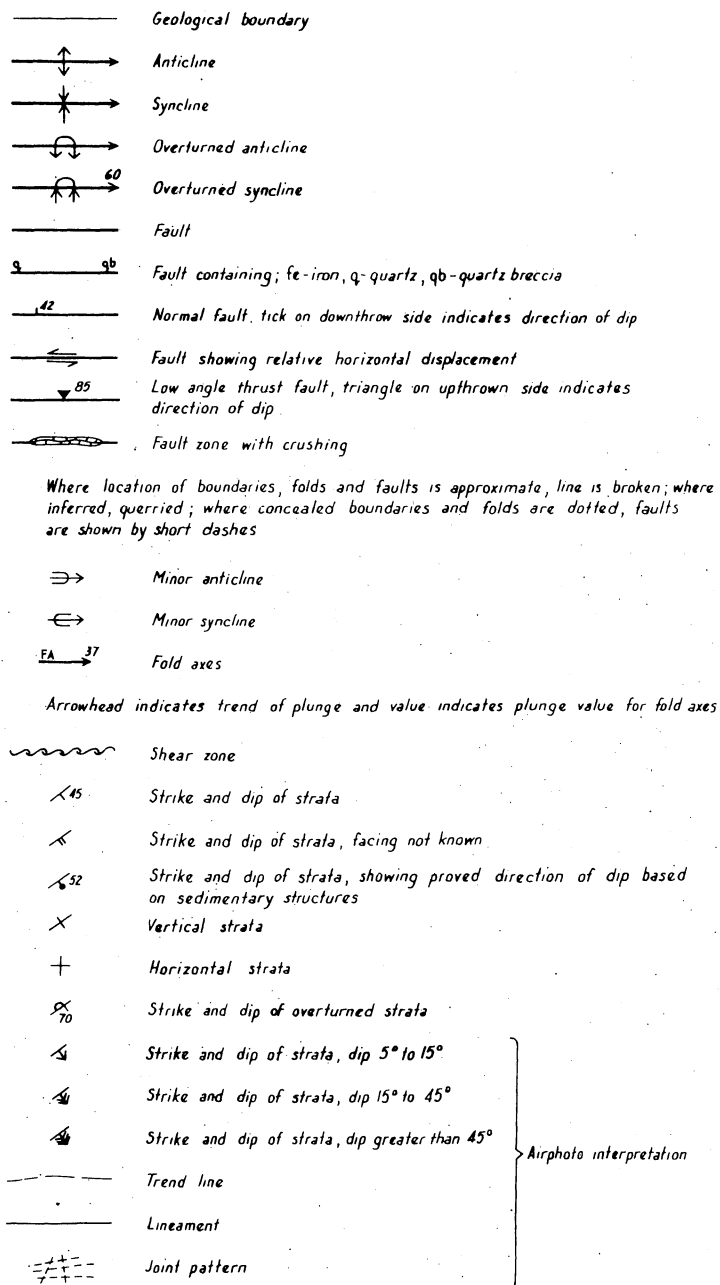 Geological boundary
Anticline
Syncline
Overturned anticline
60
Overturned syncline
Fault
q qb
Fault containing; fe-iron, q-quartz, qb-quartz breccia
42
Normal fault. tick on downthrow side indicates direction of dip
Fault showing relative horizontal displacement
85
Low angle thrust fault, triangle on upthrown side indicates
direction of dip
Fault zone with crushing
Where location of boundaries, folds and faults is approximate, line is broken; where
inferred, querried; where concealed boundaries and folds are dotted, faults
are shown by short dashes
Minor anticline
Minor syncline
FA 37
Fold axes
Arrowhead indicates trend of plunge and value indicates plunge value for fold axes
Shear zone
45 Strike and dip of strata
Strike and dip of strata, facing not known
52 Strike and dip of strata, showing proved direction of dip based
on sedimentary structures
Vertical strata
Horizontal strata
70 Strike and dip of overturned strata
Strike and dip of strata, dip 5° to 15°
Strike and dip of strata, dip 15° to 45°
Strike and dip of strata, dip greater than 45°
Airphoto interpretation
Trend line
Lineament
Joint pattern